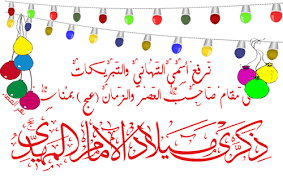 نرفع أسمى التهاني والتبريكات
الى مقام صاحب العصر والزمان (عج) بمناسبة
ذكرى ميلاد الإمام المهدي